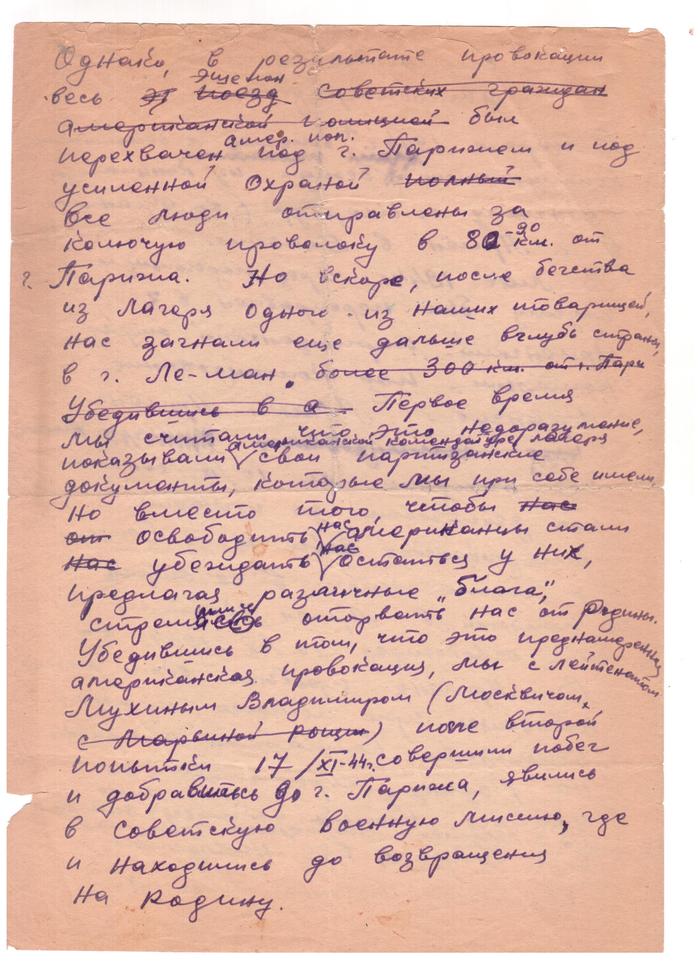 Однако, в результате провокации
эшелон
весь эт поезд советских граждан
американской полицией был
амер. пол.
перехвачен под г. Парижем и под
усиленной охраной полный
все люди отправлены за
колючую проволоку в 80-90 км. от
г. Парижа. Но вскоре, после бегства
из лагеря одного из наших товарищей,
нас загнали еще дальше вглубь страны,
в г. Ле-ман. более 300 км. от г. Пари
Убедившись в а Первое время
мы считали, что это недоразумение,
американской комендатуре лагеря
показывали свои партизанские
документы, которые мы при себе имели,
Но вместо того, чтобы нас
нас
от освободить американцы стали
нас
нас убеждать остаться у них,
предлагая различные „блага",
стремясь оторвать нас от Родины.
Убедившись в том, что это преднамеренная
американская провокация, мы с лейтенантом
Мухиным Владимиром (Москвичом,
с Марьиной рощи) после второй
попытки 17/XI-44г. совершили побег
и добравшись до г. Парижа, явились
в Советскую Военную Миссию, где
и находились до возвращения
на Родину.